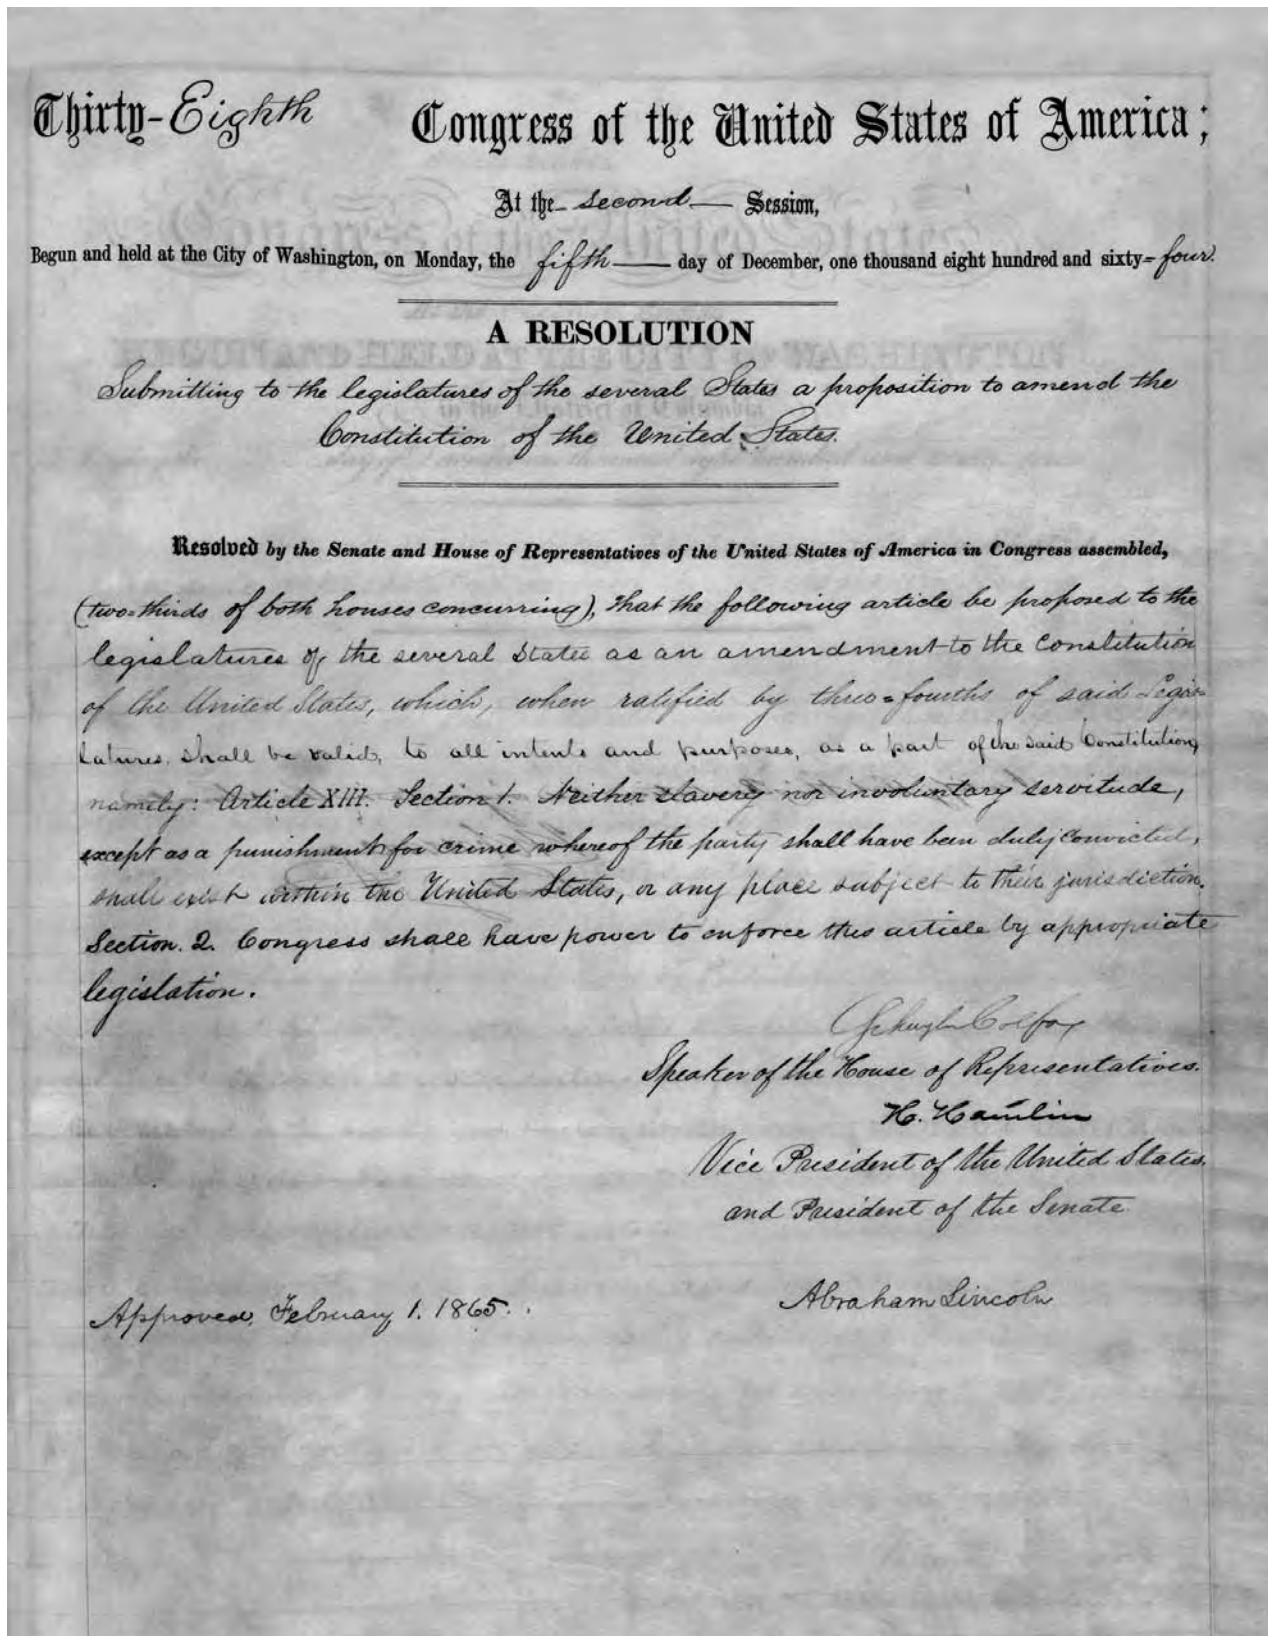 Thirty-Eighth Congress of the United States of America;
At the second Session,
Begun and held at the City of Washington, on Monday, the fifth day of December, one thousand eight hundred and sixty-four.
A RESOLUTION
Submitting to the legislatures of the several States a proposition to amend the
Constitution of the United States.
Resolved by the Senate and House of Representatives of the United States of America in Congress assembled,
(two-thirds of both houses concurring), that the following article be proposed to the
legislatures of the several States as an amendment to the Constitution
of the United States, which, when ratified by three-fourths of said Legis-
latures, shall be valid, to all intents and purposes, as a part of the said Constitution,
namely: Article XIII. Section 1. Neither slavery nor involuntary servitude,
except as a punishment for crime whereof the party shall have been duly convicted,
shall exist within the United States, or any place subject to their jurisdiction.
Section. 2. Congress shall have power to enforce this article by appropriate
legislation.
Schuyler Colfax
Speaker of the House of Representatives.
H. Hamlin
Vice President of the United States,
and President of the Senate
Approved, February 1. 1865. Abraham Lincoln